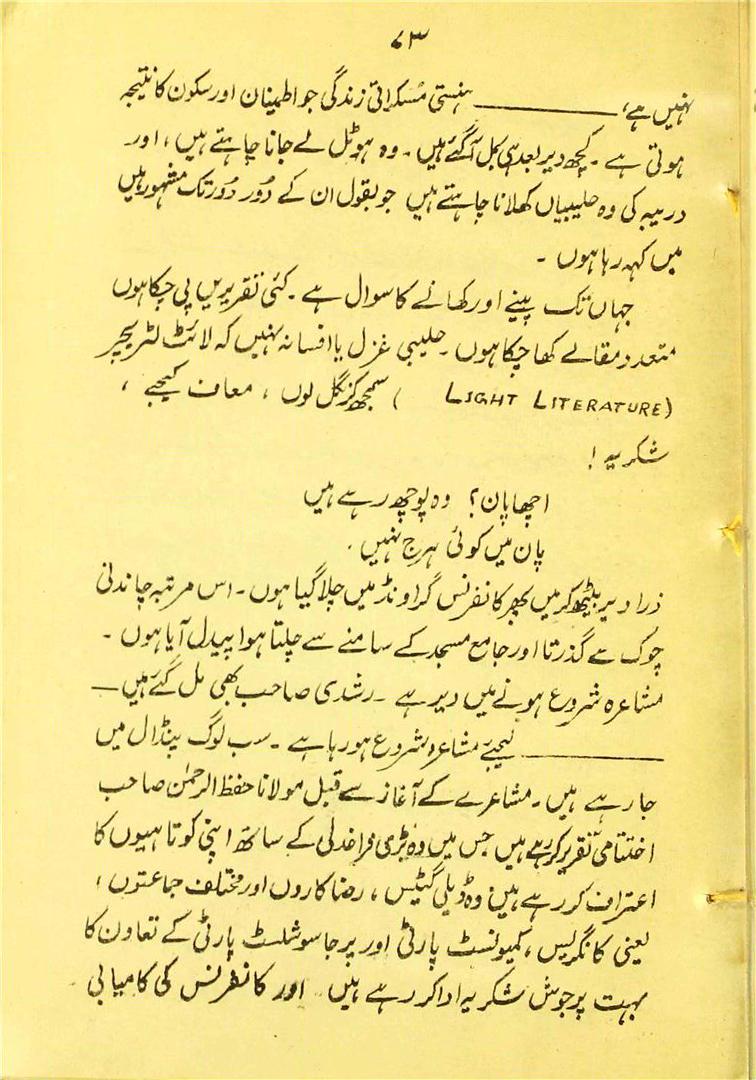 ۷۳
نہیں ہے، ——— ہنستی مسکراتی زندگی جو اطمینان اور سکون کا نتیجہ
ہوتی ہے۔ کچھ دیر بعد ہی بمل آگئے ہیں۔ وہ ہوٹل لے جانا چاہتے ہیں، اور
دریبہ کی وہ جلیبیاں کھلانا چاہتے ہیں جو بقول ان کے دُور دُور تک مشہور ہیں
میں کہہ رہا ہوں۔
جہاں تک پینے اور کھانے کا سوال ہے۔ کئی تقریریں پی چکا ہوں
متعدد مقالے کھا چکا ہوں۔ جلیبی غزل یا افسانہ نہیں کہ لائٹ لٹریچر
(LIGHT LITERATURE) سمجھ کر نگل لوں، معاف کیجیے،
شکریہ!
اچھا پان؟ وہ پوچھ رہے ہیں
پان میں کوئی ہرج نہیں۔
ذرا دیر بیٹھ کر میں پھر کانفرنس گراونڈ میں چلا گیا ہوں۔ اس مرتبہ چاندنی
چوک سے گذرتا اور جامع مسجد کے سامنے سے چلتا ہوا پیدل آیا ہوں۔
مشاعرہ شروع ہونے میں دیر ہے۔ رشدی صاحب بھی مل گئے ہیں —
——— لیجیے مشاعرہ شروع ہو رہا ہے۔ سب لوگ پنڈال میں
جا رہے ہیں۔ مشاعرے کے آغاز سے قبل مولانا حفظ الرحمٰن صاحب
اختتامی تقریر کر رہے ہیں جس میں وہ بڑی فراخدلی کے ساتھ اپنی کوتاہیوں کا
اعتراف کر رہے ہیں وہ ڈیلی گٹیس، رضا کاروں اور مختلف جماعتوں،
یعنی کانگریس، کمیونسٹ پارٹی اور پرجا سوشلسٹ پارٹی کے تعاون کا
بہت پرجوش شکریہ ادا کر رہے ہیں اور کانفرنس کی کامیابی